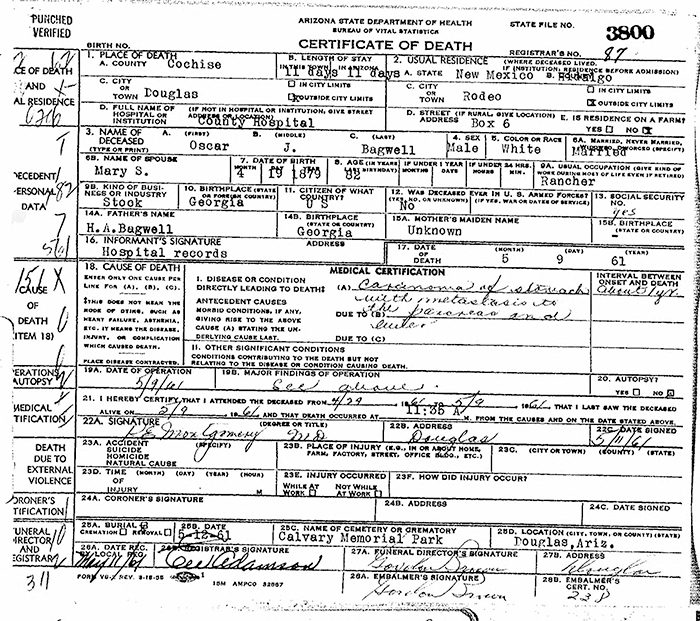 PUNCHED
VERIFIED
ARIZONA STATE DEPARTMENT OF HEALTH
BUREAU OF VITAL STATISTICS
CERTIFICATE OF DEATH
STATE FILE NO. 3800
BIRTH NO.
REGISTRAR'S NO. 87
1. PLACE OF DEATH
A. COUNTY Cochise
B. LENGTH OF STAY
IN THIS TOWN IN ARIZONA
11 days 11 days
2. USUAL RESIDENCE (WHERE DECEASED LIVED.
IF INSTITUTION, RESIDENCE BEFORE ADMISSION)
A. STATE New Mexico B. COUNTY Hidalgo
C. CITY OR TOWN Douglas
IN CITY LIMITS
OUTSIDE CITY LIMITS
C. CITY OR TOWN Rodeo
IN CITY LIMITS
OUTSIDE CITY LIMITS
D. FULL NAME OF HOSPITAL OR INSTITUTION (IF NOT IN HOSPITAL OR INSTITUTION, GIVE STREET ADDRESS OR LOCATION)
County Hospital
D. STREET (IF RURAL, GIVE LOCATION) ADDRESS Box 6
E. IS RESIDENCE ON A FARM?
YES NO
3. NAME OF DECEASED (TYPE OR PRINT)
A. (FIRST) Oscar B. (MIDDLE) J. C. (LAST) Bagwell
4. SEX Male
5. COLOR OR RACE White
6A. MARRIED, NEVER MARRIED, WIDOWED, DIVORCED (SPECIFY) Married
6B. NAME OF SPOUSE Mary S.
7. DATE OF BIRTH MONTH 4 DAY 19 YEAR 1879
8. AGE (IN YEARS LAST BIRTHDAY) 82
IF UNDER 1 YEAR MONTHS DAYS
IF UNDER 24 HRS. HOURS MIN.
9A. USUAL OCCUPATION (GIVE KIND OF WORK DURING MOST OF LIFE EVEN IF RETIRED)
Rancher
9B. KIND OF BUSINESS OR INDUSTRY Stock
10. BIRTHPLACE (STATE OR FOREIGN COUNTRY) Georgia
11. CITIZEN OF WHAT COUNTRY? U S
12. WAS DECEASED EVER IN U. S. ARMED FORCES?
(YES, NO, OR UNKNOWN) (IF YES, WAR OR DATES OF SERVICE)
NO
13. SOCIAL SECURITY NO. yes
14A. FATHER'S NAME H.A.Bagwell
14B. BIRTHPLACE (STATE OR COUNTRY) Georgia
15A. MOTHER'S MAIDEN NAME Unknown
15B. BIRTHPLACE (STATE OR COUNTRY) -
16. INFORMANT'S SIGNATURE ADDRESS
Hospital records
17. DATE OF DEATH (MONTH) 5 (DAY) 9 (YEAR) 61
18. CAUSE OF DEATH
ENTER ONLY ONE CAUSE PER LINE FOR (A), (B), (C).
THIS DOES NOT MEAN THE MODE OF DYING, SUCH AS HEART FAILURE, ASTHENIA, ETC. IT MEANS THE DISEASE, INJURY, OR COMPLICATION WHICH CAUSED DEATH.
PLACE DISEASE CONTRACTED.
MEDICAL CERTIFICATION
INTERVAL BETWEEN ONSET AND DEATH
I. DISEASE OR CONDITION DIRECTLY LEADING TO DEATH: (A) carcinoma of stomach about 1 yr.
ANTECEDENT CAUSES
MORBID CONDITIONS, IF ANY, GIVING RISE TO THE ABOVE CAUSE (A) STATING THE UNDERLYING CAUSE LAST.
with metastasis to
DUE TO (B) the pancreas and
liver
DUE TO (C)
II. OTHER SIGNIFICANT CONDITIONS
CONDITIONS CONTRIBUTING TO THE DEATH BUT NOT RELATING TO THE DISEASE OR CONDITION CAUSING DEATH.
19A. DATE OF OPERATION 5/9/61
19B. MAJOR FINDINGS OF OPERATION See above.
20. AUTOPSY?
YES NO
21. I HEREBY CERTIFY THAT I ATTENDED THE DECEASED FROM 4/29 1961 TO 5/9 1961 THAT I LAST SAW THE DECEASED
ALIVE ON 5/9 1961 AND THAT DEATH OCCURRED AT 11:35 A M. FROM THE CAUSES AND ON THE DATE STATED ABOVE.
22A. SIGNATURE (DEGREE OR TITLE) Montgomery MD
22B. ADDRESS Douglas
22C. DATE SIGNED 5/11/61
23A. ACCIDENT SUICIDE HOMICIDE NATURAL CAUSE (SPECIFY)
23B. PLACE OF INJURY (E.G., IN OR ABOUT HOME, FARM, FACTORY, STREET, OFFICE BLDG., ETC.)
23C. (CITY OR TOWN) (COUNTY) (STATE)
23D. TIME OF INJURY (MONTH) (DAY) (YEAR) (HOUR) M
23E. INJURY OCCURRED
WHILE AT WORK NOT WHILE AT WORK
23F. HOW DID INJURY OCCUR?
24A. CORONER'S SIGNATURE
24B. ADDRESS
24C. DATE SIGNED
25A. BURIAL
CREMATION REMOVAL
25B. DATE 5-12-61
25C. NAME OF CEMETERY OR CREMATORY
Calvary Memorial Park
25D. LOCATION (CITY, TOWN, OR COUNTY) (STATE)
Douglas,Ariz.
26A. DATE REC. BY LOCAL REG.
26B. REGISTRAR'S SIGNATURE Adamson
27A. FUNERAL DIRECTOR'S SIGNATURE Gordon Brown
27B. ADDRESS Douglas
28A. EMBALMER'S SIGNATURE Gordon Brown
28B. EMBALMER'S CERT. NO. 238
15M AMPCO 32667
311